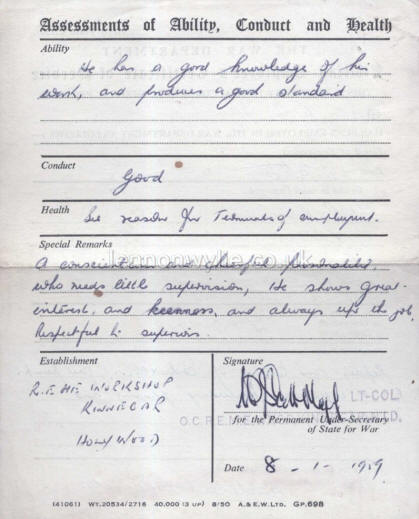 Assessments of Ability, Conduct and Health
Ability
He has a good knowledge of his
work, and produces a good standard
Conduct
Good
Health
See reason for Terminats of employment.
Special Remarks
A conscientious and cheerful personality,
who needs little supervision, He shows great
interest, and keenness, and always up to the job,
Respectful to superiors.
lennonwylie.co.uk
Establishment
R.E.ME WORKSHOP
KINNEGAR
HOLYWOOD
Signature
LT-COL
O.C.R.E.M.E.
for the Permanent Under-Secretary
of State for War
Date 8 - 1 - 1959
(41061) WT.20534/2716 40,000 (3 UP) 8/50 A.& E.W.LTD. GP.698